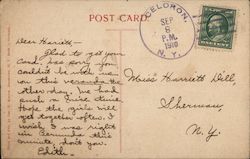 POST CARD.
CELORON,
SEP
6
P.M.
1910
N.Y.
Dear Harriett—
Glad to get your
Card, but sorry you
couldn't be with us
on this veranda the
other day. We had
such a nice time.
Hope the girls will
get together often. I
wish I was right
in Bermuda this
minute don't you.
Edith.
Miss Harriett Dell,
Sherman,
N.Y.